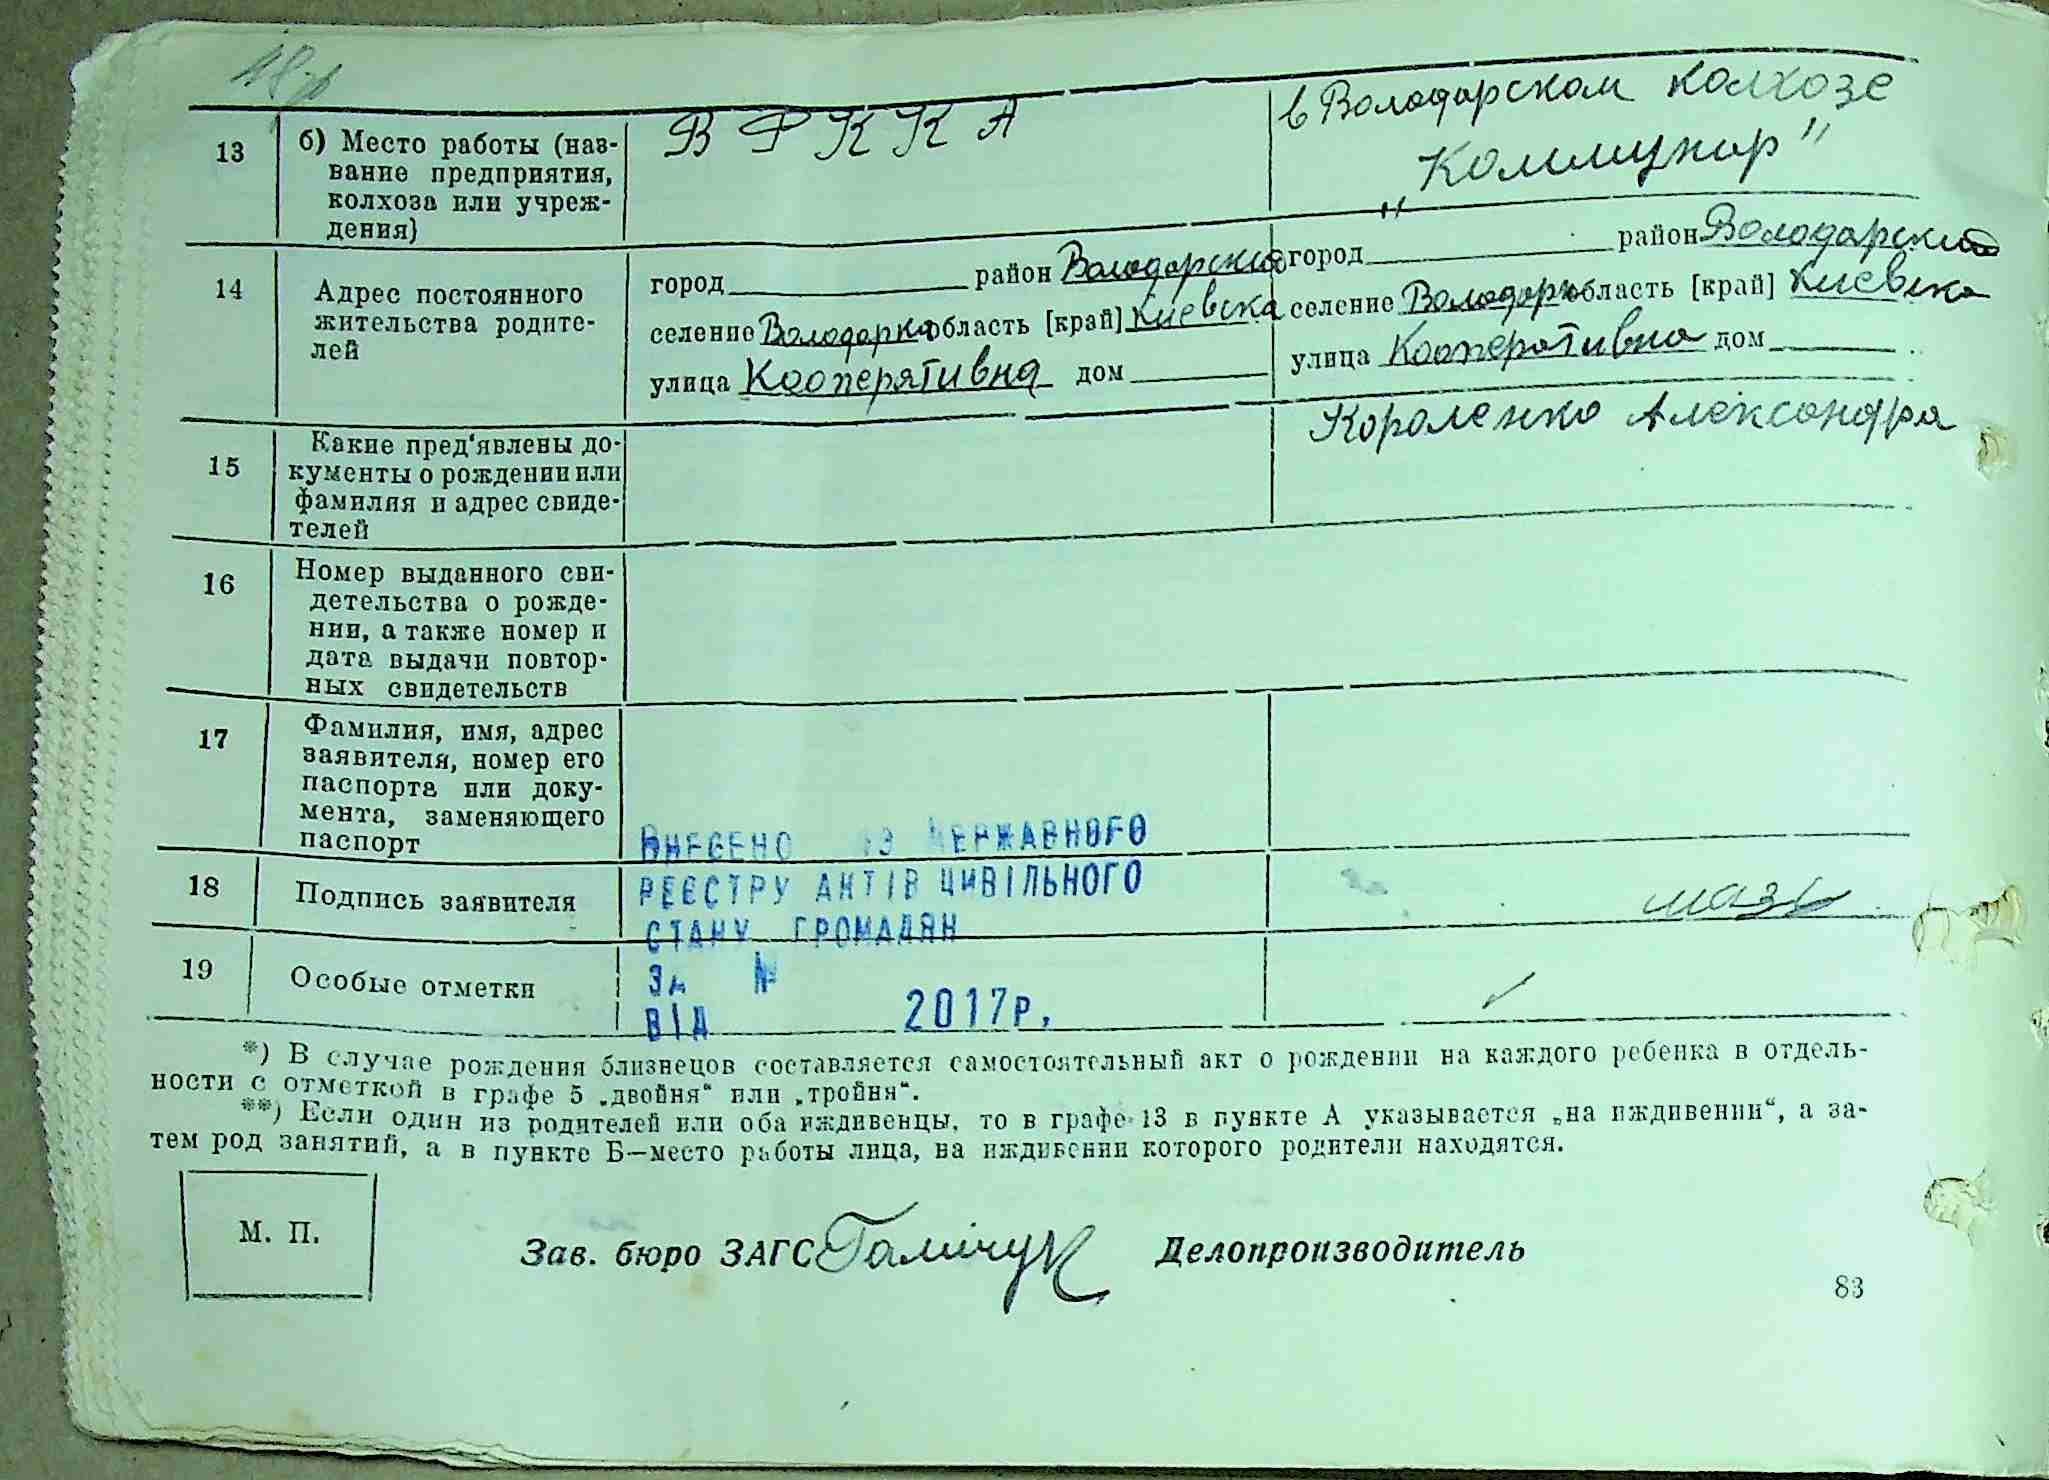 13
б) Место работы (наз-
вание предприятия,
колхоза или учреж-
дения)
В РККА
в Володарском колхозе
„Коммунар"
14
Адрес постоянного
жительства родите-
лей
город район Володарский
селение Володарка область [край] Киевска
улица Кооперативна дом
город район Володарский
селение Володарк область [край] Киевска
улица Кооперативна дом
15
Какие пред'явлены до-
кументы о рождении или
фамилия и адрес свиде-
телей
Короленко Александра
16
Номер выданного сви-
детельства о рожде-
нии, а также номер и
дата выдачи повтор-
ных свидетельств
17
Фамилия, имя, адрес
заявителя, номер его
паспорта или доку-
мента, заменяющего
паспорт
18
Подпись заявителя
19
Особые отметки
ВНЕСЕНО ДЕРЖАВНОГО
РЕЄСТРУ АКТІВ ЦИВІЛЬНОГО
СТАНУ ГРОМАДЯН
ЗА №
ВІД 2017р.
*) В случае рождения близнецов составляется самостоятельный акт о рождении на каждого ребенка в отдель-
ности с отметкой в графе 5 „двойня" или „тройня".
**) Если один из родителей или оба иждивенцы, то в графе 13 в пункте А указывается „на иждивении", а за-
тем род занятий, а в пункте Б—место работы лица, на иждивении которого родители находятся.
М. П.
Зав. бюро ЗАГС
Делопроизводитель
83